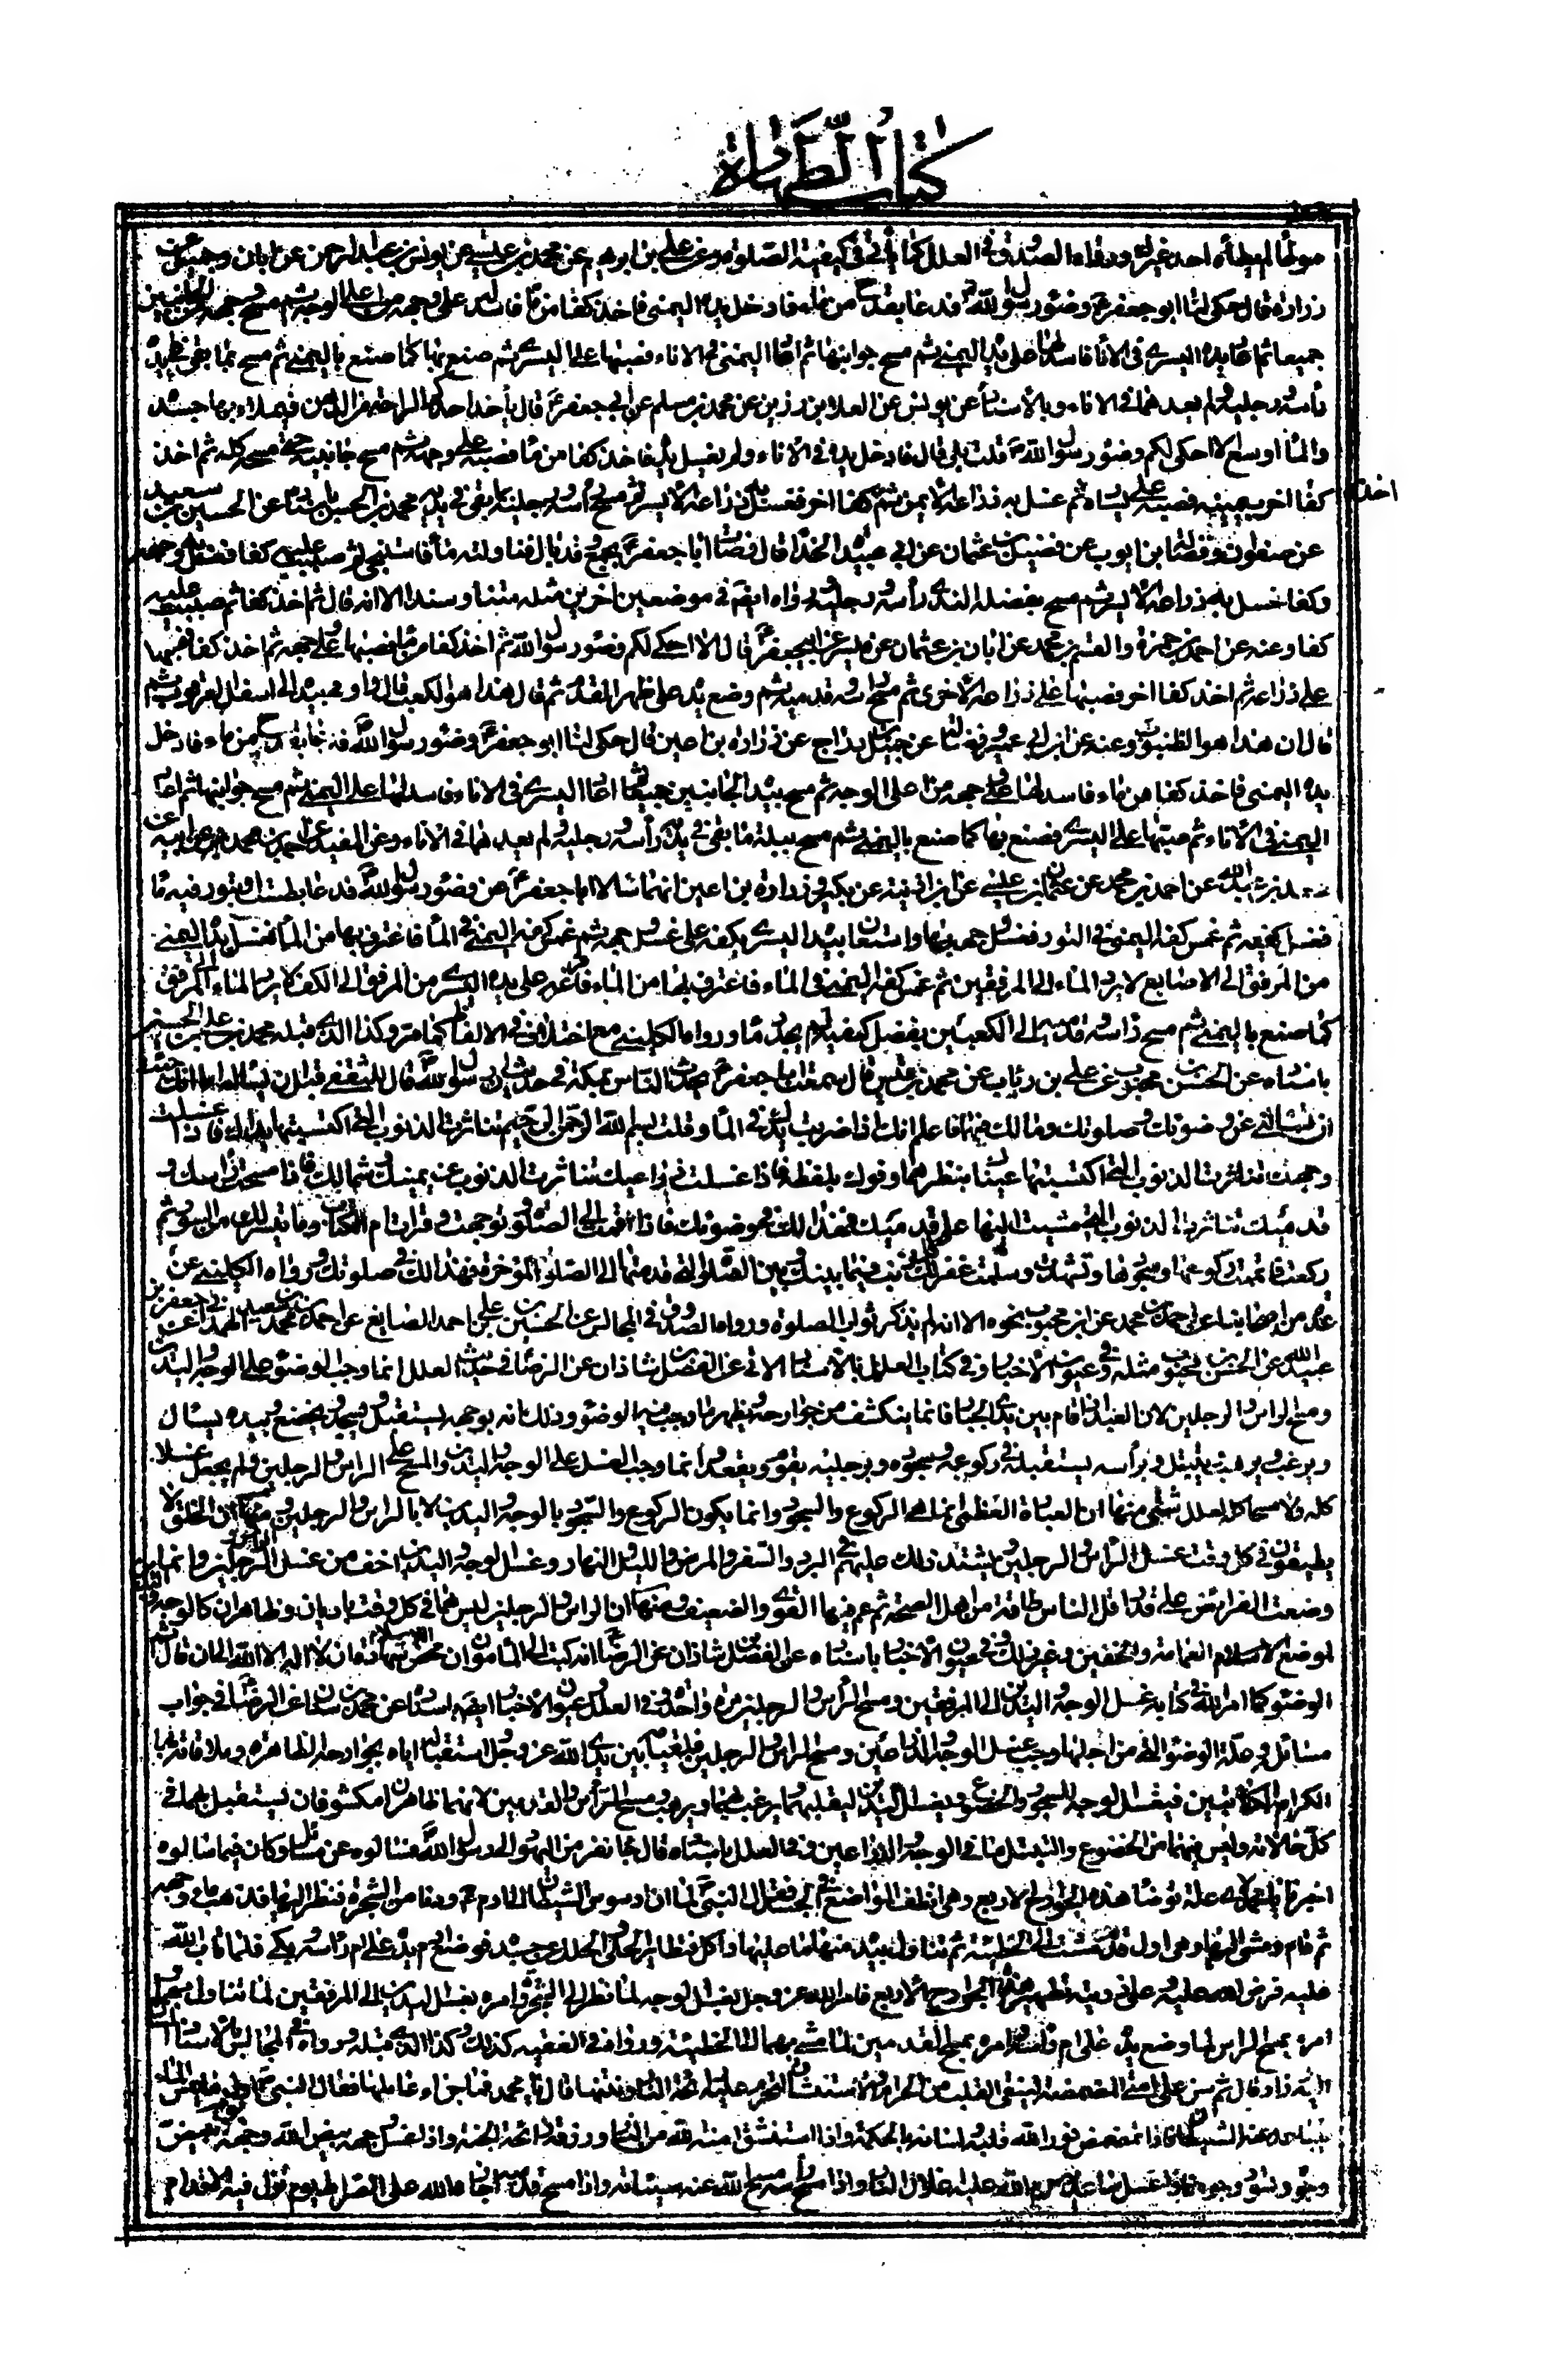 كتاب الطهارة
ولم يعطها احد غيرك ورواه الصدوق في العلل كما يأتي في كيفية الصلوة وعن علي بن ابراهيم عن محمد بن عيسى عن يونس بن عبد الرحمن عن ابان وجميل عن
زرارة قال حكى لنا ابو جعفر ع وضوء رسول الله ص فدعا بقدح من ماء فادخل يده اليمنى فاخذ كفا من ماء فاسدلها على وجهه من اعلى الوجه ثم مسح وجهه من الجانبين
جميعا ثم اعاد يده اليسرى في الاناء فاسدلها على يده اليمنى ثم مسح جوانبها ثم اعاد اليمنى في الاناء فصبها على اليسرى ثم صنع بها كما صنع باليمنى ثم مسح بما بقى في يده
رأسه ورجليه ولم يعدهما في الاناء وبالاسناد عن يونس عن العلا بن رزين عن محمد بن مسلم عن ابي جعفر ع قال يأخذ احدكم الراحة من الدهن فيملاء بها جسده
والماء اوسع الا احكى لكم وضوء رسول الله ص قلت بلى قال فادخل يده في الاناء ولم يغسل يده فاخذ كفا من ماء فصبه على وجهه ثم مسح جانبيه حتى مسحه كله ثم اخذ
كفا اخر بيمينه فصبه على يساره ثم غسل به ذراعه الايمن ثم اخذ كفا اخر فغسل به ذراعه الايسر ثم مسح رأسه ورجليه بما بقى في يديه محمد بن الحسن باسناده عن الحسين بن سعيد
عن صفوان وفضالة بن ايوب عن فضيل بن عثمان عن ابي عبيدة الحذاء قال وضأت ابا جعفر ع بجمع وقد بال فناولته ماء فاستنجى ثم صببت عليه كفا فغسل به وجهه
وكفا غسل به ذراعه الايسر ثم مسح بفضلة الندى رأسه ورجليه ورواه ايضا في موضعين اخرين مثله متنا وسندا الا انه قال ثم اخذ كفا ثم صببت عليه
كفا وعنه عن احمد بن حمزة والقسم بن محمد عن ابان بن عثمان عن ميسر عن ابي جعفر ع قال الا احكى لكم وضوء رسول الله ص ثم اخذ كفا من ماء فصبها على وجهه ثم اخذ كفا فصبها
على ذراعه ثم اخذ كفا اخر فصبها على ذراعه الاخرى ثم مسح رأسه وقدميه ثم وضع يده على ظهر القدم ثم قال هذا هو الكعب قال واومى بيده الى اسفل العرقوب ثم
قال ان هذا هو الظنبوب وعنه عن ابن ابي عمير وفضالة عن جميل بن دراج عن زرارة بن اعين قال حكى لنا ابو جعفر ع وضوء رسول الله ص فدعا بقدح من ماء فادخل
يده اليمنى فاخذ كفا من ماء فاسدلها على وجهه من اعلى الوجه ثم مسح بيده الجانبين جميعا ثم اعاد اليسرى في الاناء فاسدلها على اليمنى ثم مسح جوانبها ثم اعاد
اليمنى في الاناء ثم صبها على اليسرى فصنع بها كما صنع باليمنى ثم مسح ببلة ما بقى في يديه رأسه ورجليه ولم يعدهما في الاناء وعن المفيد عن احمد بن محمد عن ابيه عن
بن عبد الله عن احمد بن محمد عن عثمان بن عيسى عن ابن اذينة عن بكير وزرارة بن اعين انهما سألا ابا جعفر ع عن وضوء رسول الله ص فدعا بطست او بتور فيه ماء
فغسل كفيه ثم غمس كفه اليمنى في التور فغسل وجهه بها واستعان بيده اليسرى بكفه على غسل وجهه ثم غمس كفه اليمنى في الماء فاغترف بها من الماء فغسل يده اليمنى
من المرفق الى الاصابع لا يرد الماء الى المرفقين ثم غمس كفه اليمنى في الماء فاغترف بها من الماء فافرغه على يده اليسرى من المرفق الى الكف لا يرد الماء الى المرفق
كما صنع باليمنى ثم مسح رأسه وقدميه الى الكعبين بفضل كفيه لم يجدد ماء ورواه الكليني مع اختلاف في الالفاظ كما مر وكذا الذي قبله محمد بن علي بن الحسين
باسناده عن الحسن بن محبوب عن علي بن رئاب عن محمد بن قيس قال سمعت ابا جعفر ع يحدث الناس بمكة في حديث ان رسول الله ص قال للثقفي قبل ان يسأله اما انك جئت
ان تسألني عن وضوئك وصلوتك ومالك فيهما فاعلم انك اذا ضربت يدك في الماء وقلت بسم الله الرحمن الرحيم تناثرت الذنوب التي اكتسبتها يداك فاذا غسلت
وجهك تناثرت الذنوب التي اكتسبتها عيناك بنظرهما وفوك بلفظه فاذا غسلت ذراعيك تناثرت الذنوب عن يمينك وشمالك فاذا مسحت رأسك و
قدميك تناثرت الذنوب التي مشيت اليها على قدميك فهذا لك في وضوئك فاذا قمت الى الصلوة وتوجهت وقرأت ام الكتاب وما تيسر لك من السور ثم
ركعت فاتممت ركوعها وسجودها وتشهدت وسلمت غفر لك كل ذنب فيما بينك وبين الصلوة التي قدمتها الى الصلوة المؤخرة فهذا لك في صلوتك ورواه الكليني عن
عدة من اصحابنا عن احمد بن محمد عن ابن محبوب نحوه الا انه لم يذكر ثواب الصلوة ورواه الصدوق في المجالس عن الحسين بن علي بن احمد الصايغ عن احمد بن محمد بن سعيد الهمداني عن جعفر بن
عبيد الله عن الحسن بن محبوب مثله وفي عيون الاخبار وفي كتاب العلل بالاسناد الاتي عن الفضل بن شاذان عن الرضا ع في حديث العلل انما وجب الوضوء على الوجه واليدين
ومسح الراس والرجلين لان العبد اذا قام بين يدي الجبار فانما ينكشف من جوارحه ويظهر ما وجب فيه الوضوء وذلك انه بوجهه يستقبل ويسجد ويخضع وبيده يسأل
ويرغب ويرهب ويتبتل وبرأسه يستقبله في ركوعه وسجوده وبرجليه يقوم ويقعد وانما وجب الغسل على الوجه واليدين والمسح على الراس والرجلين ولم يجعل غسلا
كله ولا مسحا كله لعلل شتى منها ان العبادة العظمى انما هى الركوع والسجود وانما يكون الركوع والسجود بالوجه واليدين لا بالراس والرجلين ومنها ان الخلق لا
يطيقون في كل وقت غسل الراس والرجلين يشتد ذلك عليهم في البرد والسفر والمرض والليل والنهار وغسل الوجه واليدين اخف من غسل الراس والرجلين وانما
وضعت الفرائض على قدر اقل الناس طاقة من اهل الصحة ثم عم فيها القوي والضعيف ومنها ان الراس والرجلين ليس هما في كل وقت باديان وظاهران كالوجه واليدين
لموضع العمامة والخفين وغير ذلك وفي عيون الاخبار باسناده عن الفضل بن شاذان عن الرضا ع انه كتب الى المأمون ان محض الاسلام شهادة ان لا اله الا الله الى ان قال ثم
الوضوء كما امر الله في كتابه غسل الوجه واليدين الى المرفقين ومسح الرأس والرجلين مرة واحدة وفي العلل وعيون الاخبار ايضا باسناده عن محمد بن سنان عن الرضا ع في جواب
مسائله وعلة الوضوء التي من اجلها وجب غسل الوجه والذراعين ومسح الراس والرجلين فلقيامه بين يدي الله عز وجل واستقباله اياه بجوارحه الظاهرة وملاقاته بها
الكرام الكاتبين فيغسل الوجه للسجود والخضوع ويغسل اليدين ليقلبهما ويرغب بهما ويرهب ويمسح الرأس والقدمين لانهما ظاهران مكشوفان يستقبل بهما في
كل حالاته وليس فيهما من الخضوع والتبتل ما في الوجه والذراعين وفي العلل باسناده قال جاء نفر من اليهود الى رسول الله ص فسألوه عن مسائل وكان فيما سألوه
اخبرنا يا محمد لاي علة توضأ هذه الجوارح الاربع وهى انظف المواضع في الجسد فقال النبي ص لما ان وسوس الشيطان الى ادم ع ودنا من الشجرة فنظر اليها فذهب ماء وجهه
ثم قام ومشى اليها وهى اول قدم مشت الى الخطيئة ثم تناول بيده منها ما عليها واكل فتطاير الحلى والحلل عن جسده فوضع ادم يده على ام رأسه وبكى فلما تاب الله
عليه فرض الله عليه وعلى ذريته تطهير هذه الجوارح الاربع فامر الله عز وجل بغسل الوجه لما نظر الى الشجرة وامره بغسل اليدين الى المرفقين لما تناول بهما
امره بمسح الراس لما وضع يده على ام رأسه وامره بمسح القدمين لما مشى بهما الى الخطيئة ورواه في الفقيه كذلك وكذا الذي قبله ورواه في المجالس بالاسناد
اليه زاد وقال ثم سن على امتى المضمضة لينقى القلب من الحرام والاستنشاق لتحرم عليه رائحة النار ونتنها قال يا محمد فما جزاء عاملها فقال النبي ص اول ما يمس الماء
يتباعد عنه الشيطان فاذا تمضمض نور الله قلبه ولسانه بالحكمة واذا استنشق امنه الله من النار ورزقه رائحة الجنة واذا غسل وجهه بيض الله وجهه يوم تبيض
وجوه وتسود وجوه واذا غسل ساعديه حرم الله عليه اغلال النار واذا مسح رأسه مسح الله عنه سيئاته واذا مسح قدميه اجازه الله على الصراط يوم تزل فيه الاقدام